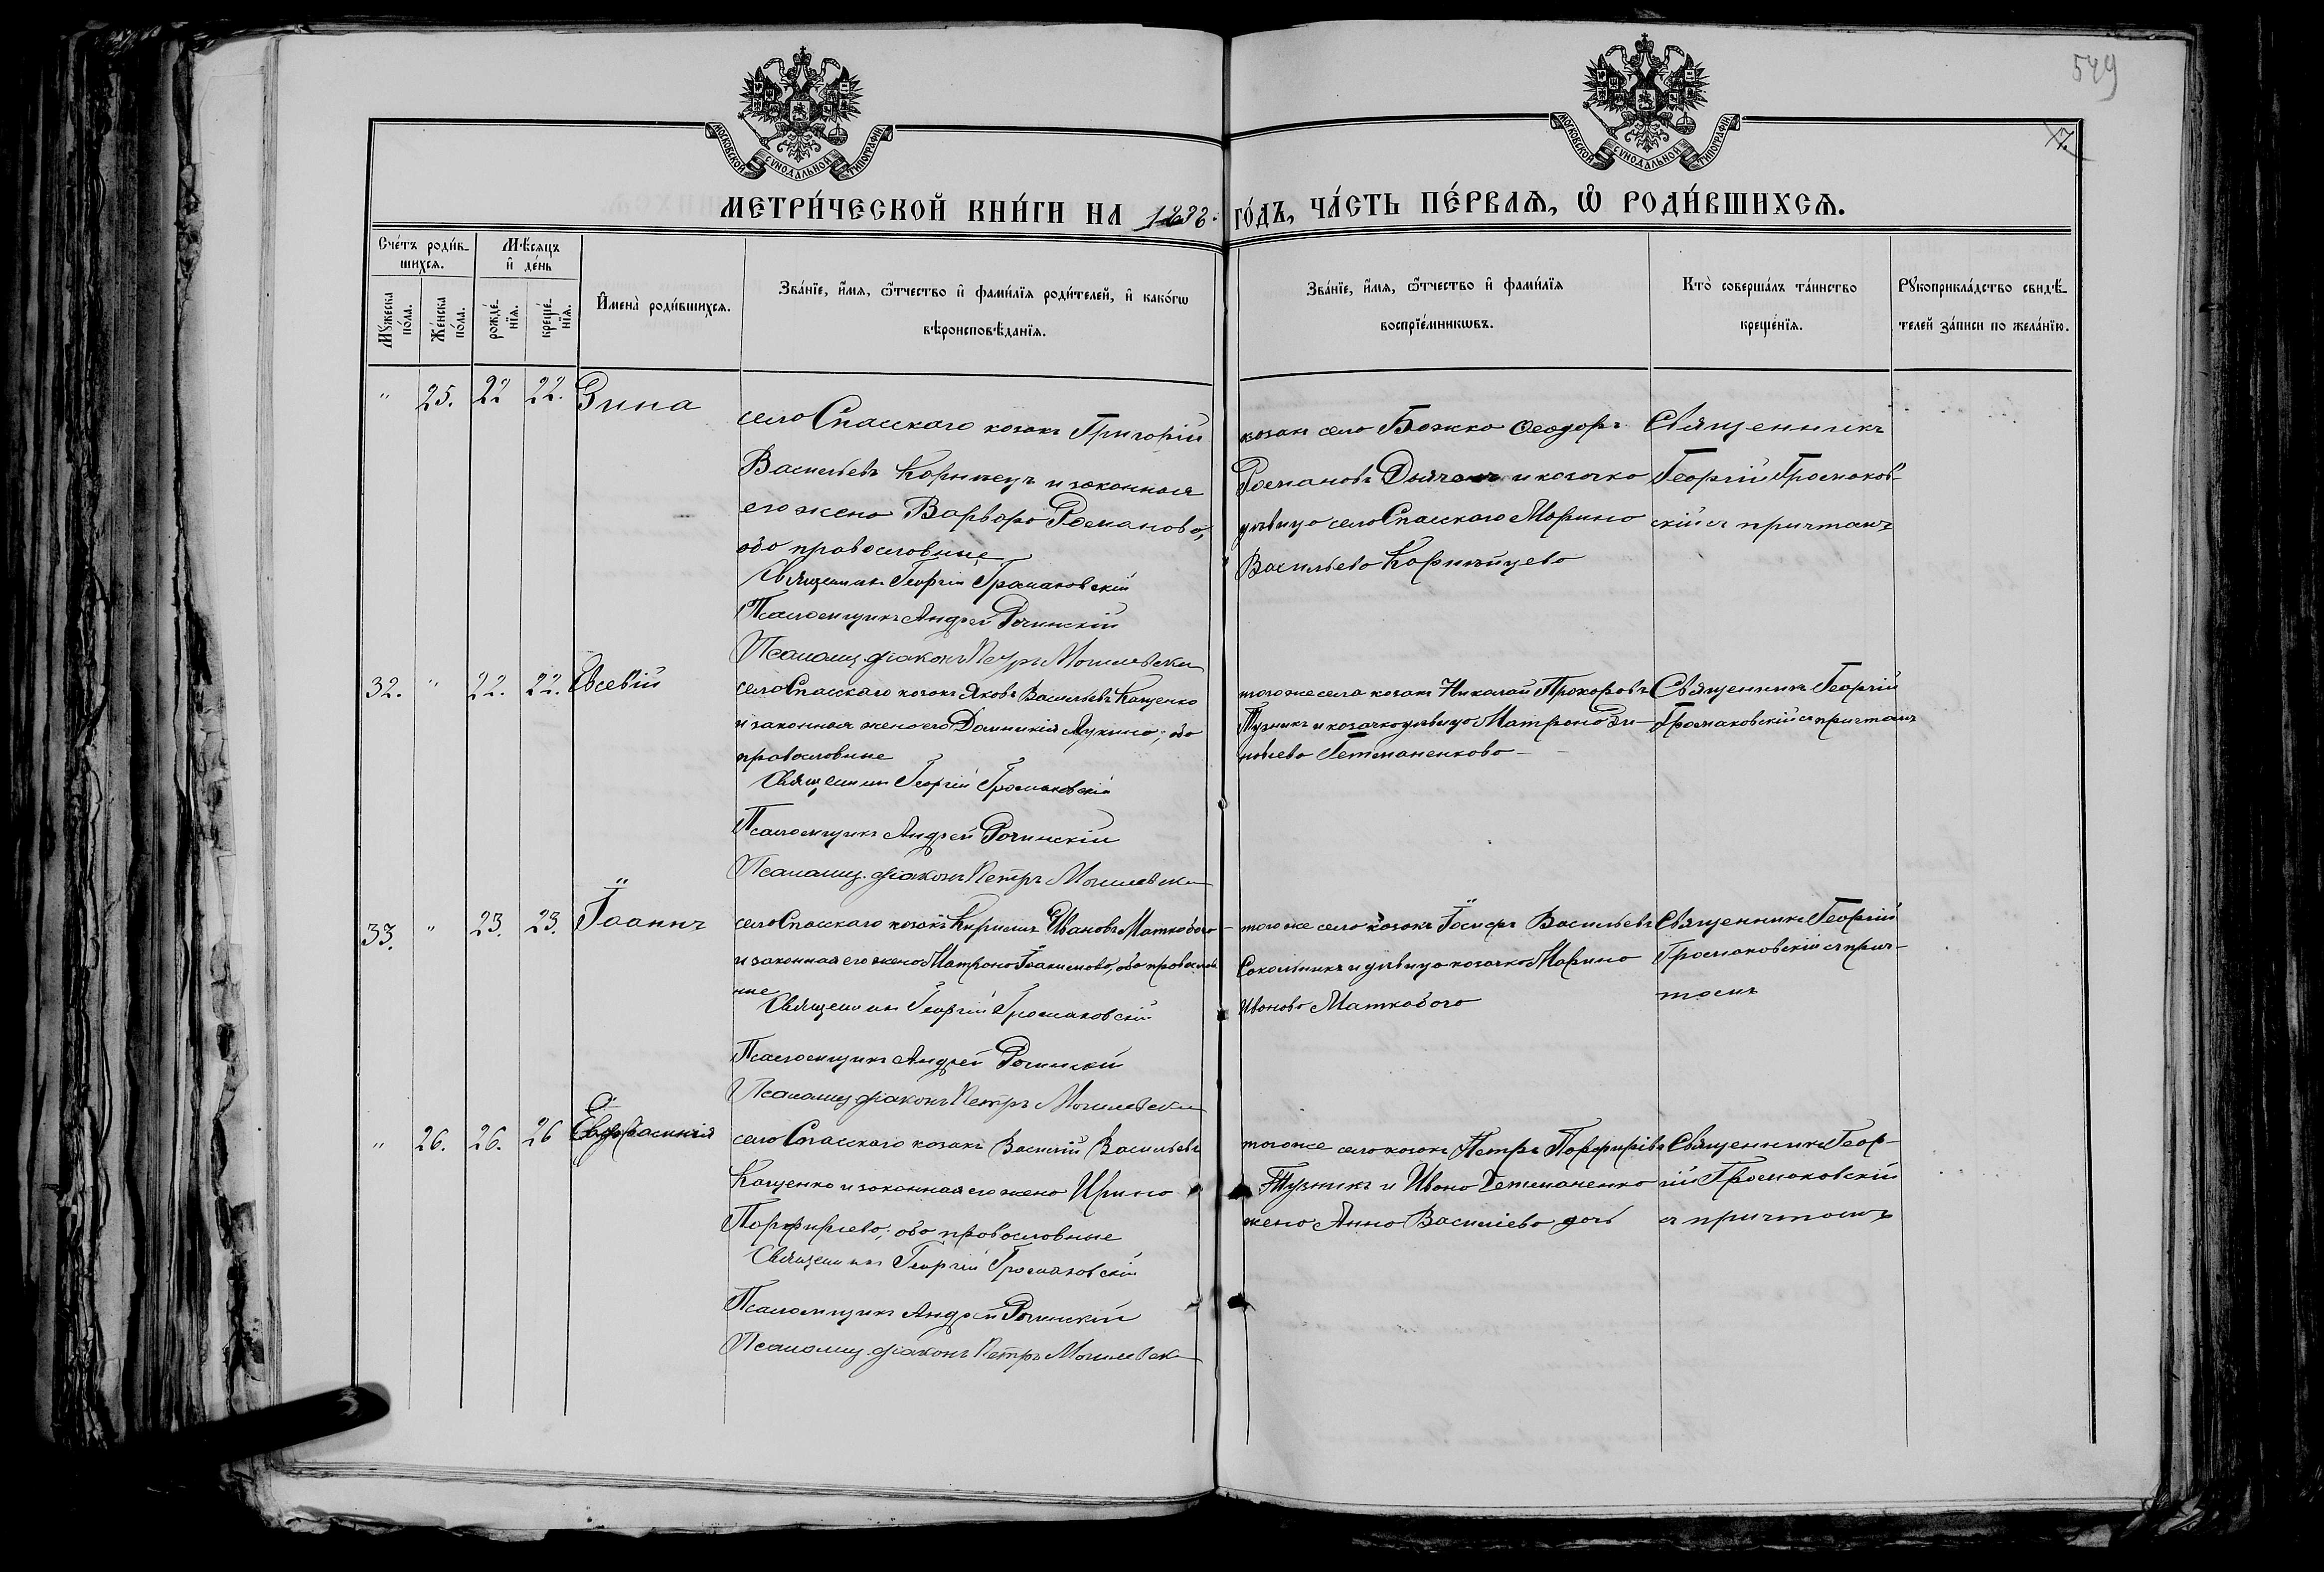 549
7.
МОСКОВСКОЙ СѴНОДАЛЬНОЙ ТИПОГРАФІИ
МОСКОВСКОЙ СѴНОДАЛЬНОЙ ТИПОГРАФІИ
МЕТРИ́ЧЕСКОЙ КНИ́ГИ НА 1883. ГО́ДЪ, ЧА́СТЬ ПЕ́РВАЯ, Ѡ҆ РОДИ́ВШИХСЯ.
Сче́тъ роди́в-
шихся.
Мꙋ́жеска по́ла.
Же́нска по́ла.
Мѣ́сяцъ
и҆ де́нь
рожде́-
нїя.
креще́-
нїя.
И҆мена̀ роди́вшихся.
Зва́нїе, и҆́мя, ѻ҆́тчество и҆ фами́лїя роди́телей, и҆ како́гѡ
вѣроисповѣ́данїя.
Зва́нїе, и҆́мя, ѻ҆́тчество и҆ фами́лїя
воспрїе́мникѡвъ.
Кто̀ соверша́лъ та́инство
креще́нїя.
Рꙋкоприкла́дство свидѣ́-
телей за́писи по жела́нїю.
" 25. 22 22. Зина
село Спасскаго козакъ Григорій
Васильевъ Корнѣецъ и законная
его жена Варвара Романова,
оба православные
Священникъ Георгій Громаковскій
Псаломщикъ Андрей
Псаломщ. діаконъ Петръ
козак село Божко Ѳеодоръ
Романовъ и козачка
дѣвица село Спасскаго Марина
Васильева
Священникъ
Георгій Громаков-
скій съ причтомъ
32. " 22. 22. Евсевій
село Спасскаго козакъ Яковъ Васильевъ Кащенко
и законная жена его Домникія Лукина; оба
православные
Священникъ Георгій Громаковскій
Псаломщикъ Андрей
Псаломщ. діаконъ Петръ
тогоже села козакъ Николай Прохоровъ
Тузникъ и козачка дѣвица Матрона Зи-
новьева Гетманенкова
Священникъ Георгій
Громаковскій съ причтомъ
33. " 23. 23. Іоаннъ
село Спасскаго козакъ Кирилъ Ивановъ Маткобого
и законная его жена Матрона Іоакимова, оба православ
ные
Священникъ Георгій Громаковскій
Псаломщикъ Андрей
Псаломщ діаконъ Петръ
тогоже село козакъ Іосифъ Васильевъ
Сокольникъ и дѣвица козачка Марина
Иванова Маткобого
Священникъ Георгій
Громаковскій съ прич-
томъ
" 26. 26. 26 Евфросинія
село Спасскаго козакъ Василій Васильевъ
Кащенко и законная его жена Ирина
Порфирьева; оба православные
Священникъ Георгій Громаковскій
Псаломщикъ Андрей
Псаломщ. діаконъ Петръ
тогоже село козакъ Петръ Порфиріевъ
Тузникъ и Ивана Гетманенко
жена Анна Василіева дочь
Священникъ Геор-
гій Громаковскій
съ причтомъ